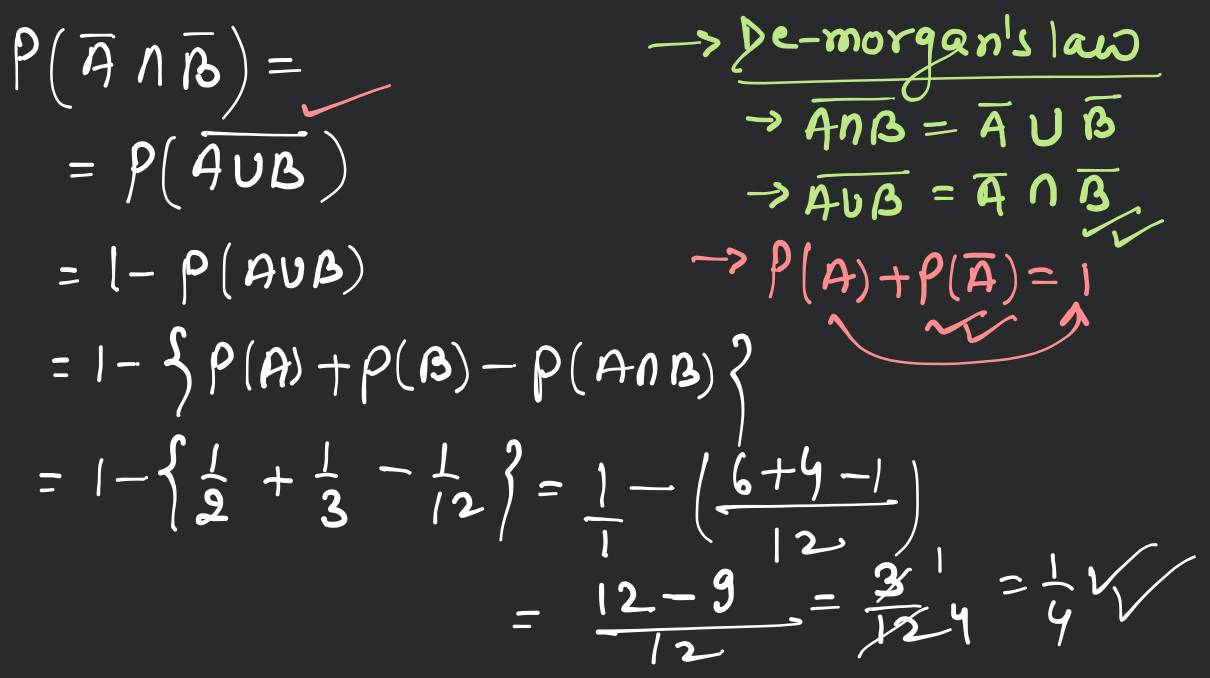 P(A̅ ∩ B̅) =
= P(A̅∪̅B̅)
= 1 - P(A∪B)
= 1 - {P(A) + P(B) - P(A∩B)}
= 1 - {1/2 + 1/3 - 1/12} = 1/1 - ((6+4-1)/12)
= (12-9)/12 = 3/12 1 4 = 1/4
→ De-morgan's law
→ A̅∩̅B̅ = A̅ ∪ B̅
→ A̅∪̅B̅ = A̅ ∩ B̅
→ P(A) + P(A̅) = 1